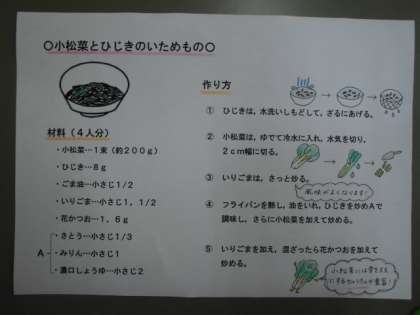 ○小松菜とひじきのいためもの○
材料（４人分）
・小松菜…１束（約２００ｇ）
・ひじき…８ｇ
・ごま油…小さじ１/２
・いりごま…小さじ１，１/２
・花かつお…１．６ｇ
・さとう…小さじ１/３
A
・みりん…小さじ１
・濃口しょうゆ…小さじ２
作り方
① ひじきは，水洗いしもどして，ざるにあげる。
② 小松菜は，ゆでて冷水に入れ，水気を切り，
２ｃｍ幅に切る。
③ いりごまは，さっと炒る。
風味がよくなります！
④ フライパンを熱し，油をいれ，ひじきを炒めＡで
調味し，さらに小松菜を加えて炒める。
⑤ いりごまを加え，混ざったら花かつおを加えて
炒める。
小松菜には骨を丈夫
にするカルシウムが豊富！